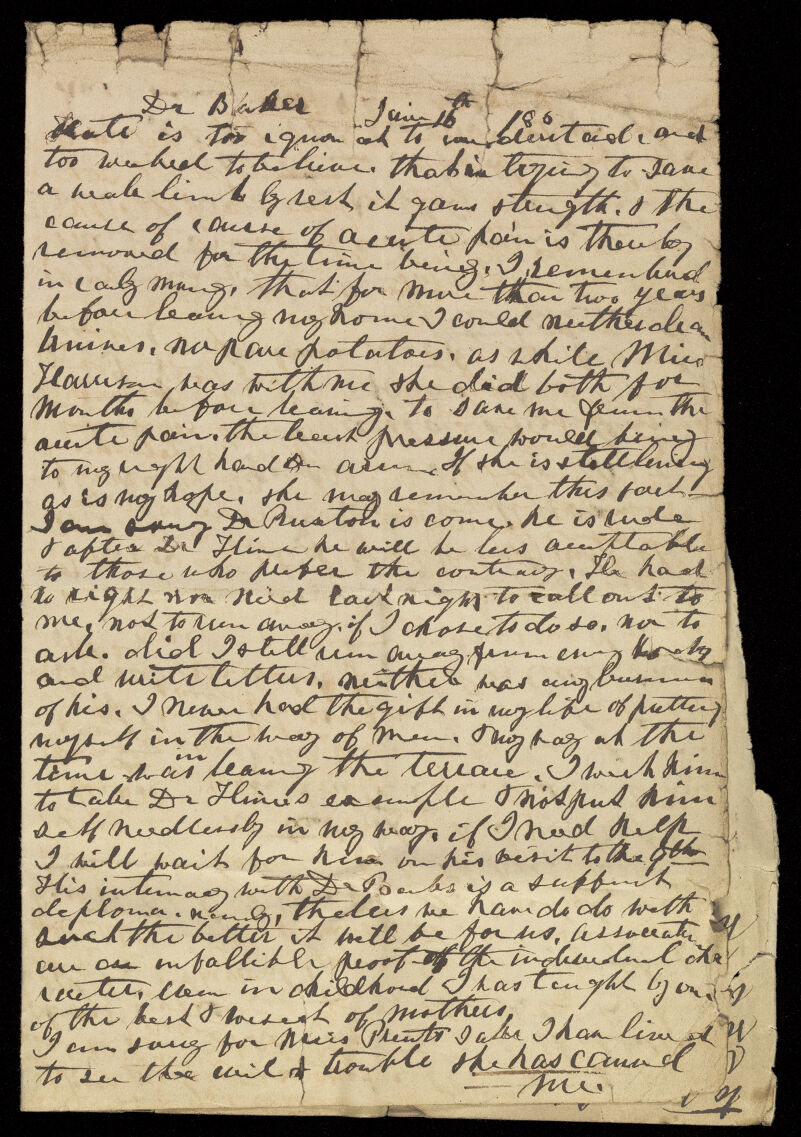 Dr Barker June 16th 186
Kate is too ignorant to understand, and
too wicked to believe. that in trying to save
a weak limb by rest it gains strength. & the
cause of cause of acute pain is thereby
removed for the time being. I remembered
in early morng, that for more than two years
before leaving my home I could neither clean
knives, nor pare potatoes. as while Miss
Harrison was with me she did both for
months before leaving. to save me from the
acute pain. the least pressure would bring
to my right hand or arm. If she is still living
as is my hope. she may remember this fact
I am sorry Dr Preston is come. he is rude
& after Dr Hines he will be less acceptable
to those who prefer the contrary. He had
no right nor need last night to call out to
me, not to run away. if I chose to do so. nor to
ask. did I still run away from every body
and write letters. neither was any business
of his. I never had the gift in my life of putting
myself in the way of men. & my way at the
time was in leaving the terrace. I wish him
to take Dr Hines example & not put him
self needlessly in my way. if I need help
I will wait for him on his visit to the 9th
His intimacy with Dr is a sufficient
diploma. the less we have do do with
such the better it will be for us. associates
are an infallible proof of the individual cha
racter. even in childhood I was taught by one
of the best & wisest of mothers.
I am sorry for Miss sake I have lived
to see the evil & trouble she has caused
me.